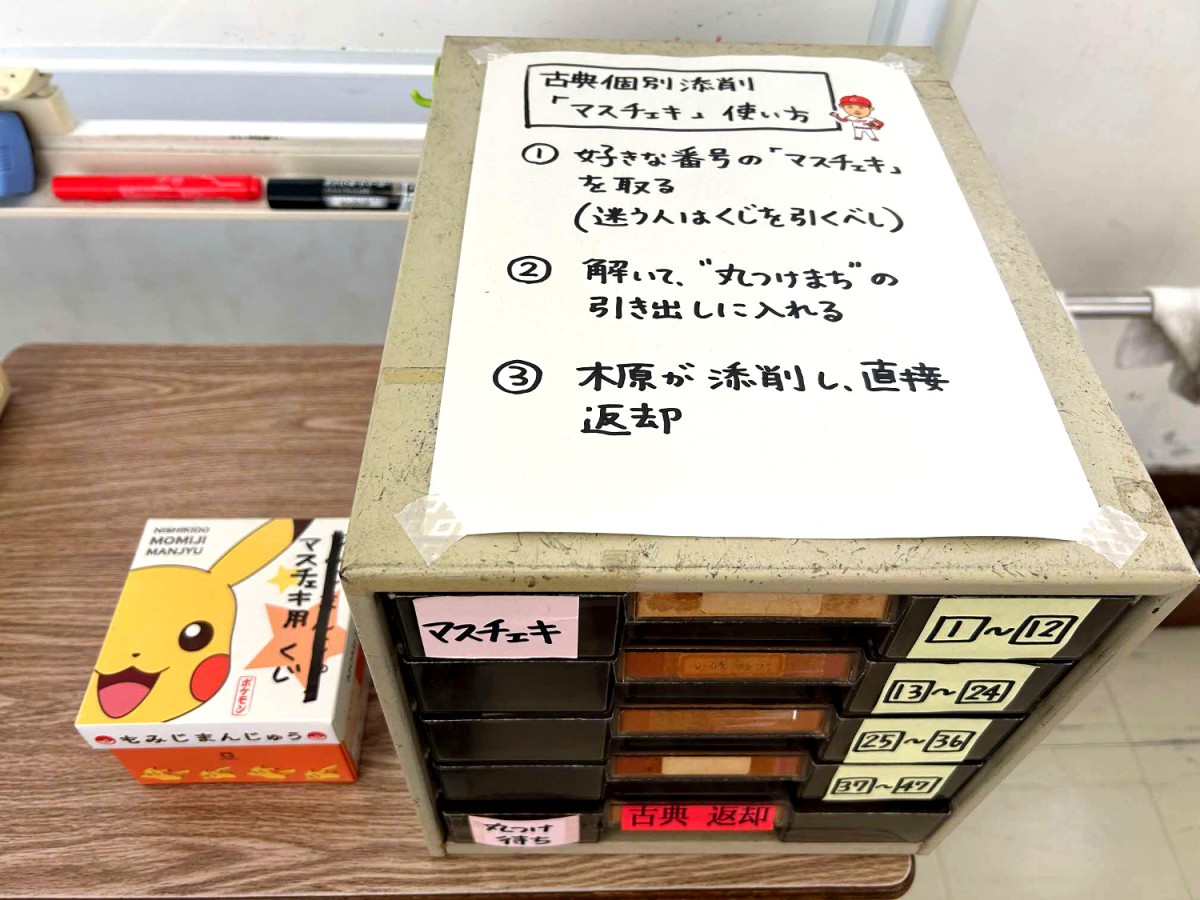 古典個別添削
「マスチェキ」使い方
① 好きな番号の「マスチェキ」
を取る
(迷う人はくじを引くべし)
② 解いて、"丸つけまち"の
引き出しに入れる
③ 木原が添削し、直接
返却
NISHIKIDO
MOMIJI
MANJYU
マスチェキ用 くじ
ポケモン
もみじまんじゅう
マスチェキ
1～12
13～24
25～36
37～47
丸つけ
待ち
古典 返却